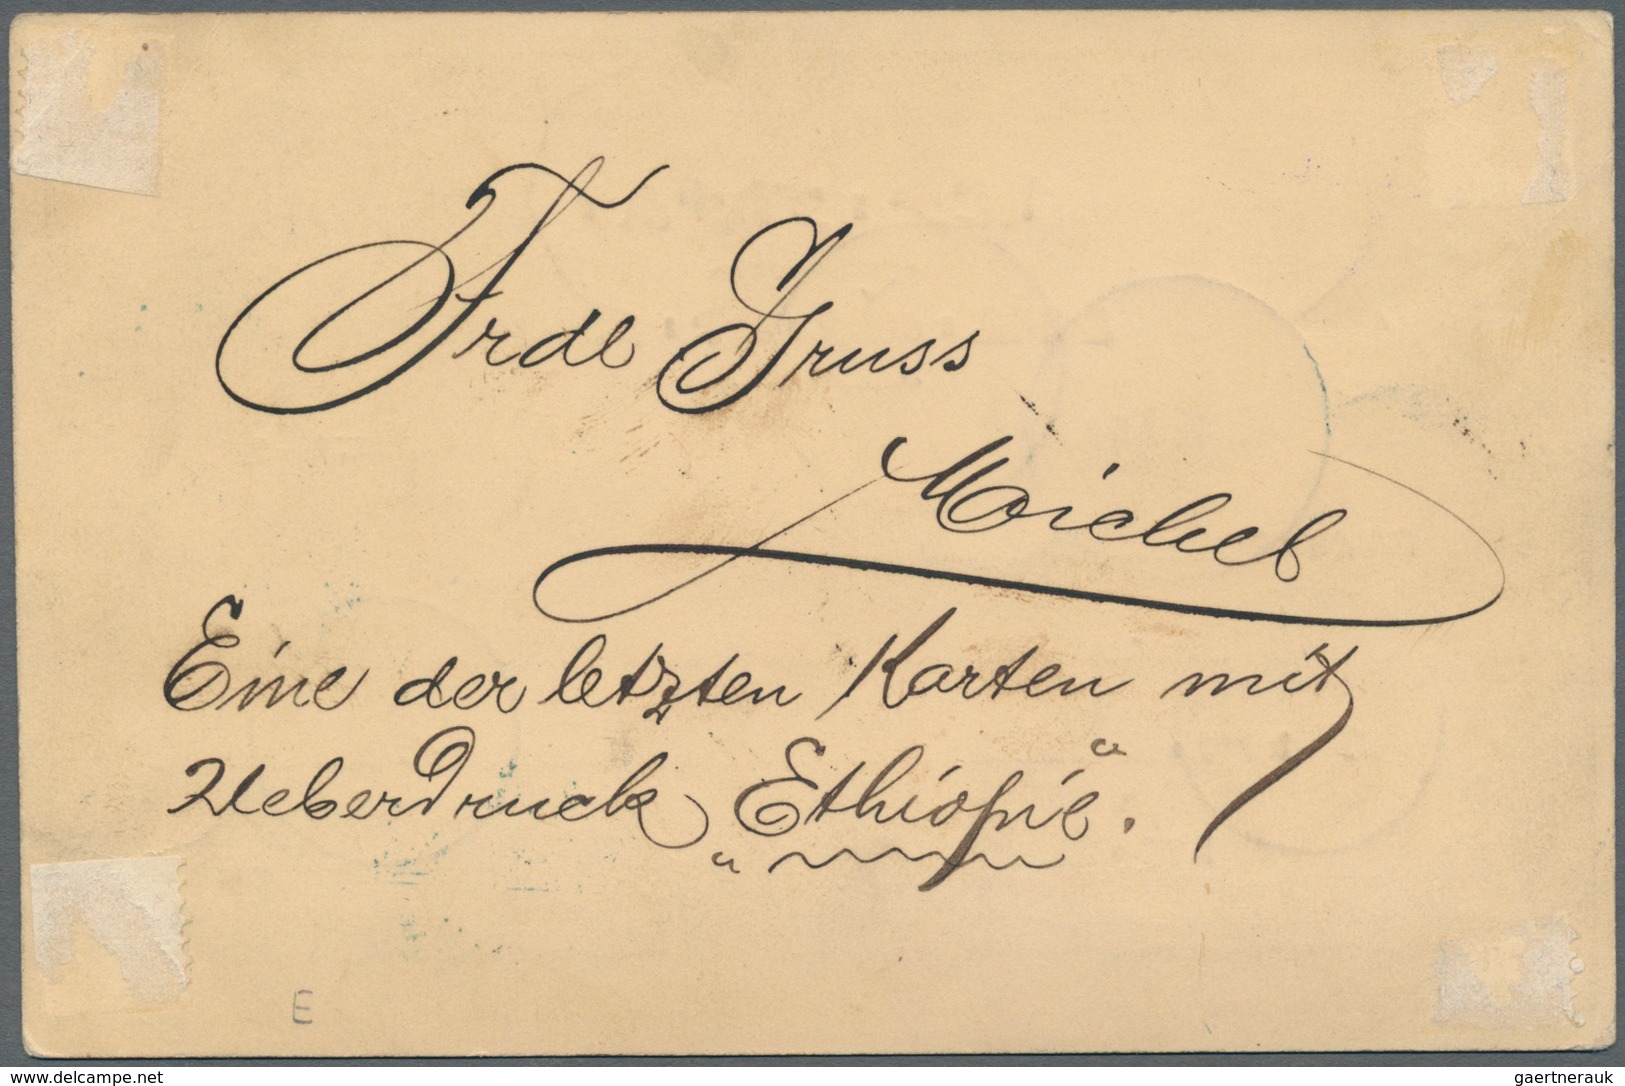 Frdl Gruss
Michel
Eine der letzten Karten mit
Ueberdruck „Ethiopie“.
E
www.delcampe.net
gaertnerauk